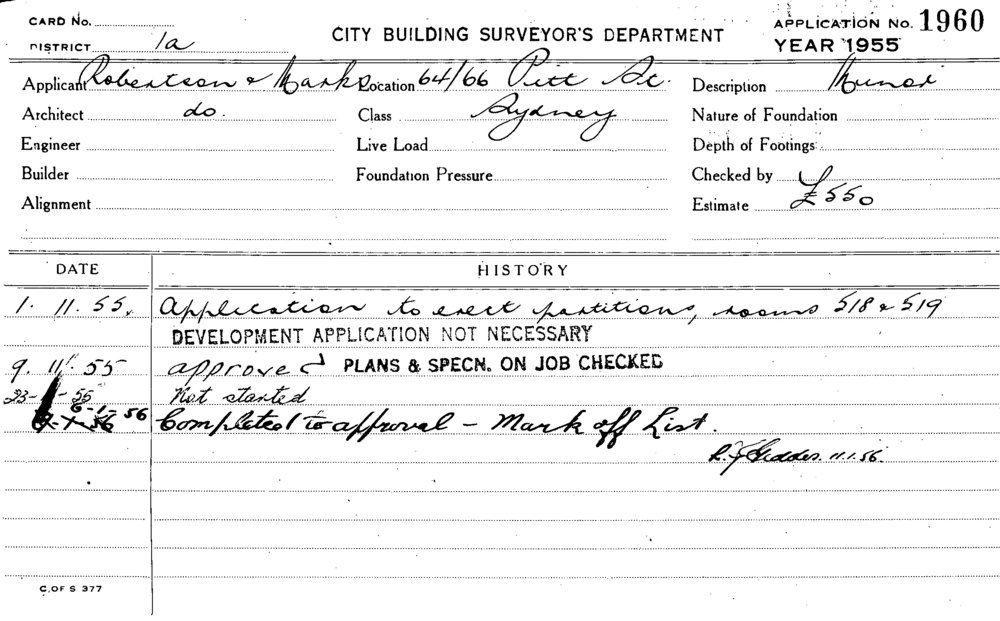 CARD No.
DISTRICT 1a
CITY BUILDING SURVEYOR'S DEPARTMENT
APPLICATION No. 1960
YEAR 1955
Applicant Robertson & Marks Location 64/66 Pitt St. Description Minor
Architect do. Class Sydney Nature of Foundation
Engineer Live Load Depth of Footings
Builder Foundation Pressure Checked by
Alignment Estimate £550
DATE HISTORY
1. 11. 55. Application to erect partitions, rooms 518 & 519
DEVELOPMENT APPLICATION NOT NECESSARY
9. 11. 55 approved PLANS & SPECN. ON JOB CHECKED
23- -55 Not started
6-1-56 Completed to approval - Mark off List.
R. J. Geddes. 11.1.56.
C. OF S 377